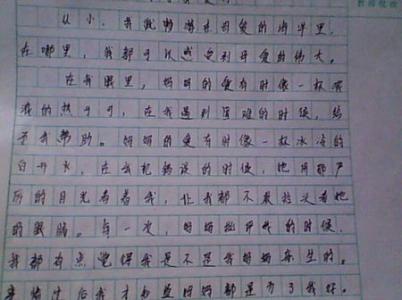 从小，我就畅游在母爱的海洋里，
在哪里，我都可以感受到母爱的伟大。
在我眼里，妈妈的爱有时像一杯
的热可可，在我遇到困难的时候，给
予我帮助。妈妈的爱有时像一杯冰冷的
白开水，在我犯错误的时候，她用那严
厉的目光看着我，让我都不敢抬头看她
的眼睛。每一次，妈妈批评我的时候，
我都有点觉得我是不是我妈妈亲生的。
后我才知道妈妈都是为了我好。